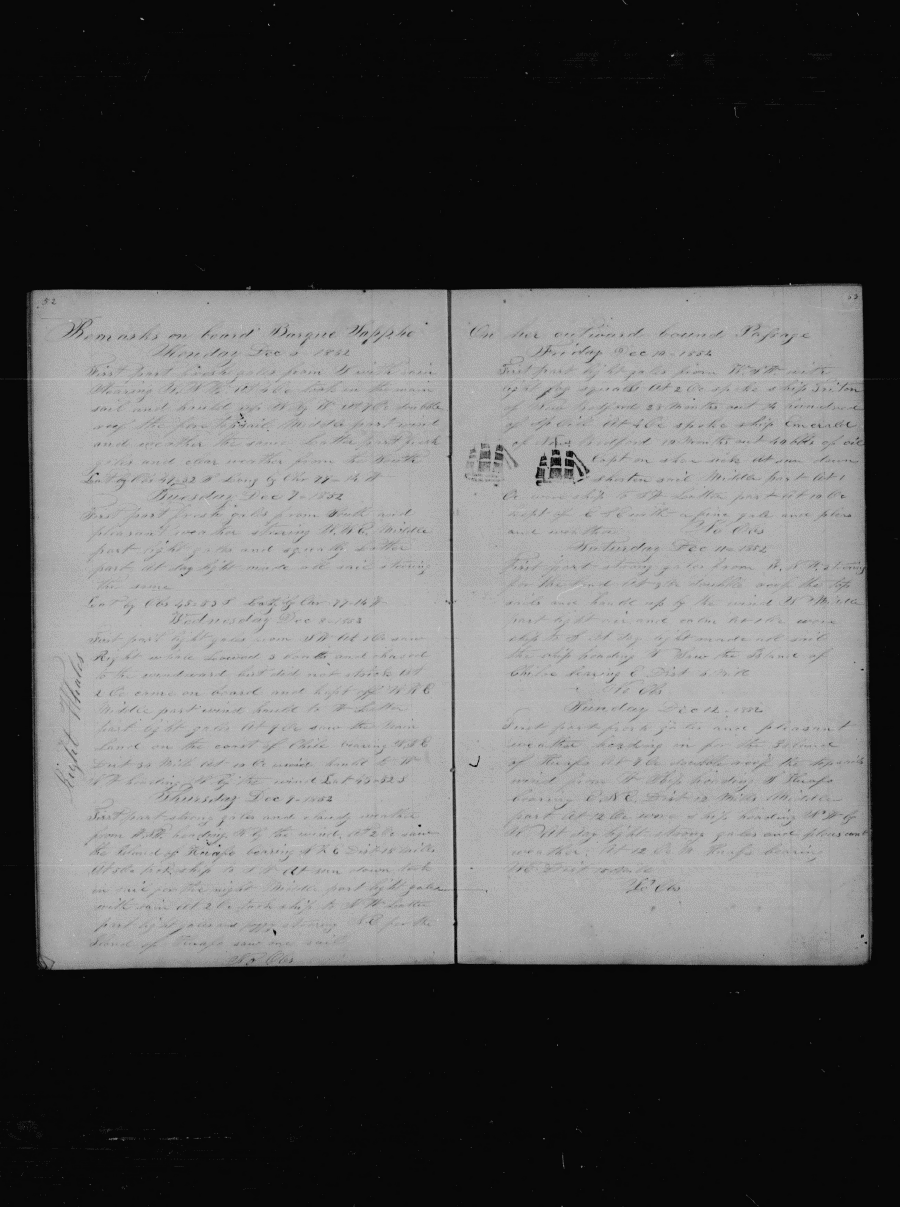 52
Remarks on board Barque Sappho
Monday Dec 6 1852
First part fresh gales from N with rain
Stearing took in the main
sail and hauld up N by W At 7 Oc double
reef the fore topsail Middle part wind
and weather the same Latter part fresh
gales and clear weather from the South
Lat by Obs 47-32 S Long by Chr 77-14 W
Tuesday Dec 7-1852
First part fresh gales from South and
pleasant weather stearing N.N.E. Middle
part light gales and squally Latter
part At day light made all sail stearing
the same
Lat by Obs 45-53 S Long by Chr 77-14 W
Wednesday Dec 8-1852
First part light gales from SW At 1 Oc saw
Right whale lowered 3 boats and chased
to the windward but did not strike At
2 Oc came on board and kept off N.N.E
Middle part wind hauld to W Latter
part light gales At 7 Oc saw the main
Land on the coast of Chile bearing
Dist 30 Mils At 10 Oc wind hauld to N
heading by the wind Lat 43-32 S
Right Whales
Thursday Dec 9-1852
First part strong gales and cloudy weather
from heading N by the wind At 2 Oc saw
the Island of Huafo bearing Dist 18 Mils
tack ship to At sun down took
in sail for the night Middle part light gales
with rain At 2 Oc tack ship to Latter
part light gales and foggy stearing N.E for the
Island of Huafo saw one sail
No Obs
53
On her outward bound Passage
Friday Dec 10-1852
First part light gales from W.S.W with
light fog squalls At 2 Oc spoke ship Triton
of New Bedford 23 Months out 14 hundred
of Sp Oil At 4 Oc spoke ship Emerald
of New Bedford Months out bbls of oil
Capt on shore sick At sun down
shorten sail Middle part At 1
Oc wore ship to S.W Latter part At 10 Oc
kept of E.S.E with a fine gale and pleas
ant weather No Obs
Saturday Dec 11-1852
First part strong gales from stearing
for the land At double reef the top
sails and hauld up by the wind Middle
part light air and calm At wore
ship to S At day light made all sail
the ship heading Saw the Island of
Chiloe bearing E Dist Mils
No Obs
Sunday Dec 12-1852
First part fresh gales and pleasant
weather heading in for the Island
of Huafo At 7 Oc double reef the topsails
wind from W Ship heading S Huafo
bearing E.N.E. Dist 12 Mils Middle
part At 12 Oc wore ship heading N W by
N At day light strong gales and pleasant
weather At 12 Oc M Huafo bearing
Dist
No Obs